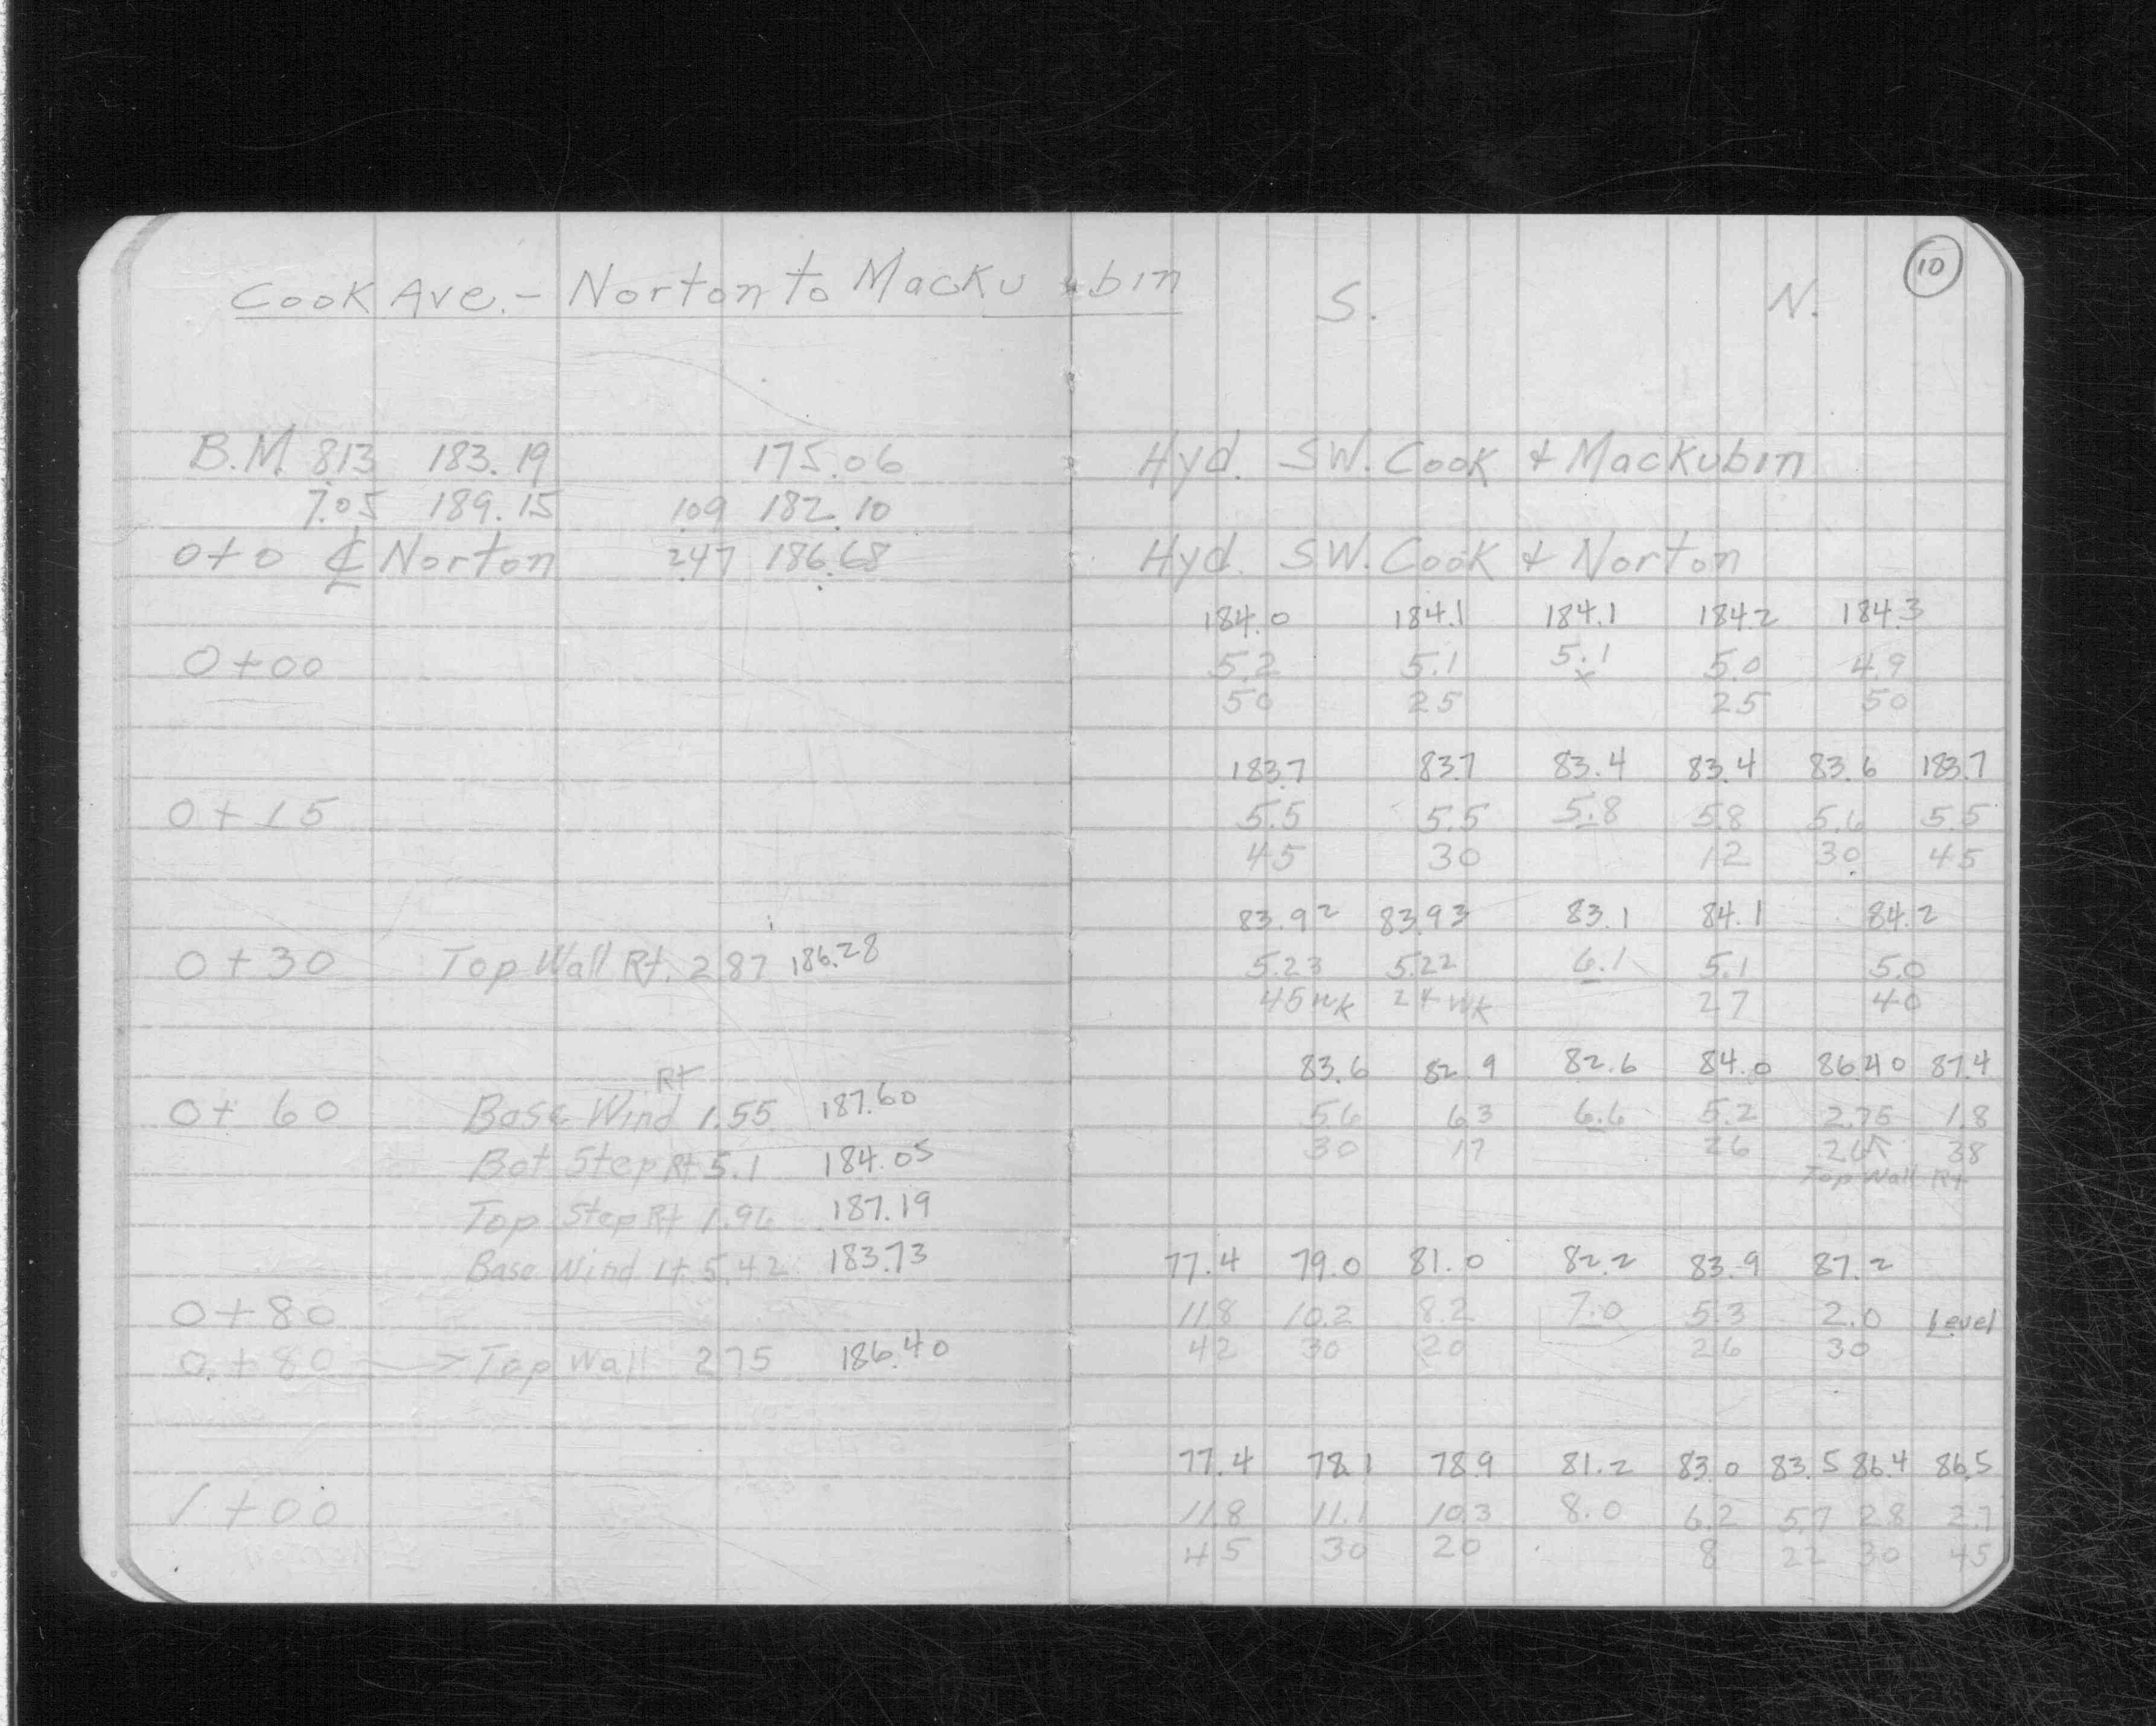 Cook Ave. - Norton to Mackubin S. N. 10
B.M. 813 183.19 175.06 Hyd. SW. Cook & Mackubin
7.05 189.15 109 182.10
0+0 ℄ Norton 247 186.68 Hyd. SW. Cook & Norton
184.0 184.1 184.1 184.2 184.3
0+00 5.2 5.1 5.1 5.0 4.9
50 25 x 25 50
183.7 83.7 83.4 83.4 83.6 183.7
0+15 5.5 5.5 5.8 5.8 5.6 5.5
45 30 12 30 45
83.92 83.93 83.1 84.1 84.2
0+30 Top Wall Rt. 287 186.28 5.23 5.22 6.1 5.1 5.0
45 WK 24 WK 27 40
83.6 82.9 82.6 84.0 86.40 87.4
Rt
0+60 Base Wind 1.55 187.60 5.6 6.3 6.6 5.2 2.75 1.8
Bot Step Rt 5.1 184.05 30 17 26 26 38
Top Wall Rt
Top Step Rt 1.96 187.19
Base Wind Lt 5.42 183.73 77.4 79.0 81.0 82.2 83.9 87.2
0+80 11.8 10.2 8.2 7.0 5.3 2.0 Level
0+80 → Top Wall 275 186.40 42 30 20 26 30
77.4 78.1 78.9 81.2 83.0 83.5 86.4 86.5
1+00 11.8 11.1 10.3 8.0 6.2 5.7 2.8 2.7
45 30 20 8 22 30 45